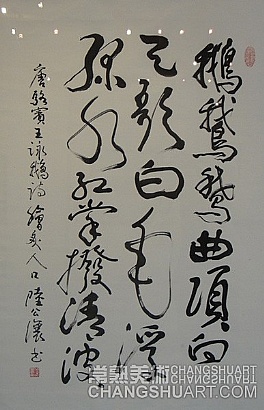 鵝鵝鵝曲項向
天歌白毛浮
綠水紅掌撥清波
唐駱賓王詠鵝詩膾炙人口陸公讓书
常熟美術 CHANGSHUART